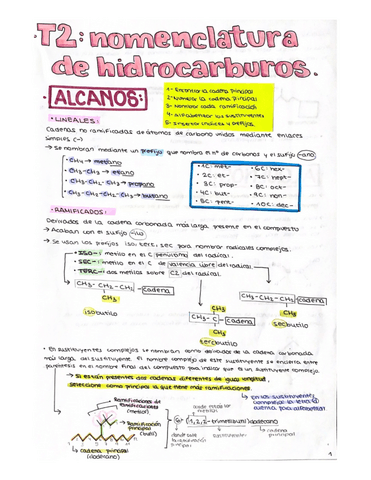 T2: nomenclatura
de hidrocarburos.
ALCANOS:
1- Encontrar la cadena principal
2- Numerar la cadena principal
3- Nombrar cada ramificación
4- Alfabetizar los sustituyentes
5-
• LINEALES:
Cadenas no ramificadas de átomos de carbono unidos mediante enlaces
simples (-)
→ Se nombran mediante un prefijo que nombra el nº de carbonos y el sufijo -ano:
• CH4 → metano
• CH3-CH3 → etano
• CH3-CH2-CH3 → propano
• CH3-CH2-CH2-CH3 → butano
• 1C: met-
• 2C: et-
• 3C: prop-
• 4C: but-
• 5C: pent-
• 6C: hex-
• 7C: hept-
• 8C: oct-
• 9C: non-
• 10C: dec-
• RAMIFICADOS:
Derivados de la cadena carbonada más larga presente en el compuesto
→ Acaban con el sufijo -ilo
→ Se usan los prefijos iso, terc, sec para nombrar radicales complejos.
• ISO-: metilo en el C penúltimo del radical.
• SEC-: metilo en el C de valencia libre del radical.
• TERC-: dos metilos sobre C2 del radical.
CH3-CH2-CH2-cadena
CH3
isobutilo
CH3
CH3-C-cadena
CH3
tercbutilo
CH3-CH2-CH-cadena
CH3
secbutilo
• En sustituyentes complejos se nombran como derivados de la cadena carbonada
más larga del sustituyente. El nombre complejo de este sustituyente se encierra entre
paréntesis en el nombre final del compuesto para indicar que es un sustituyente complejo.
→ Si están presentes dos cadenas diferentes de igual longitud,
seleccione como principal la que tiene más ramificaciones.
Ramificaciones de
ramificaciones
(metilo)
Ramificación
principal
(butil)
cadena principal
(dodecano)
6-(1,2,3-trimetilbutil)dodecano
cadena
principal
1